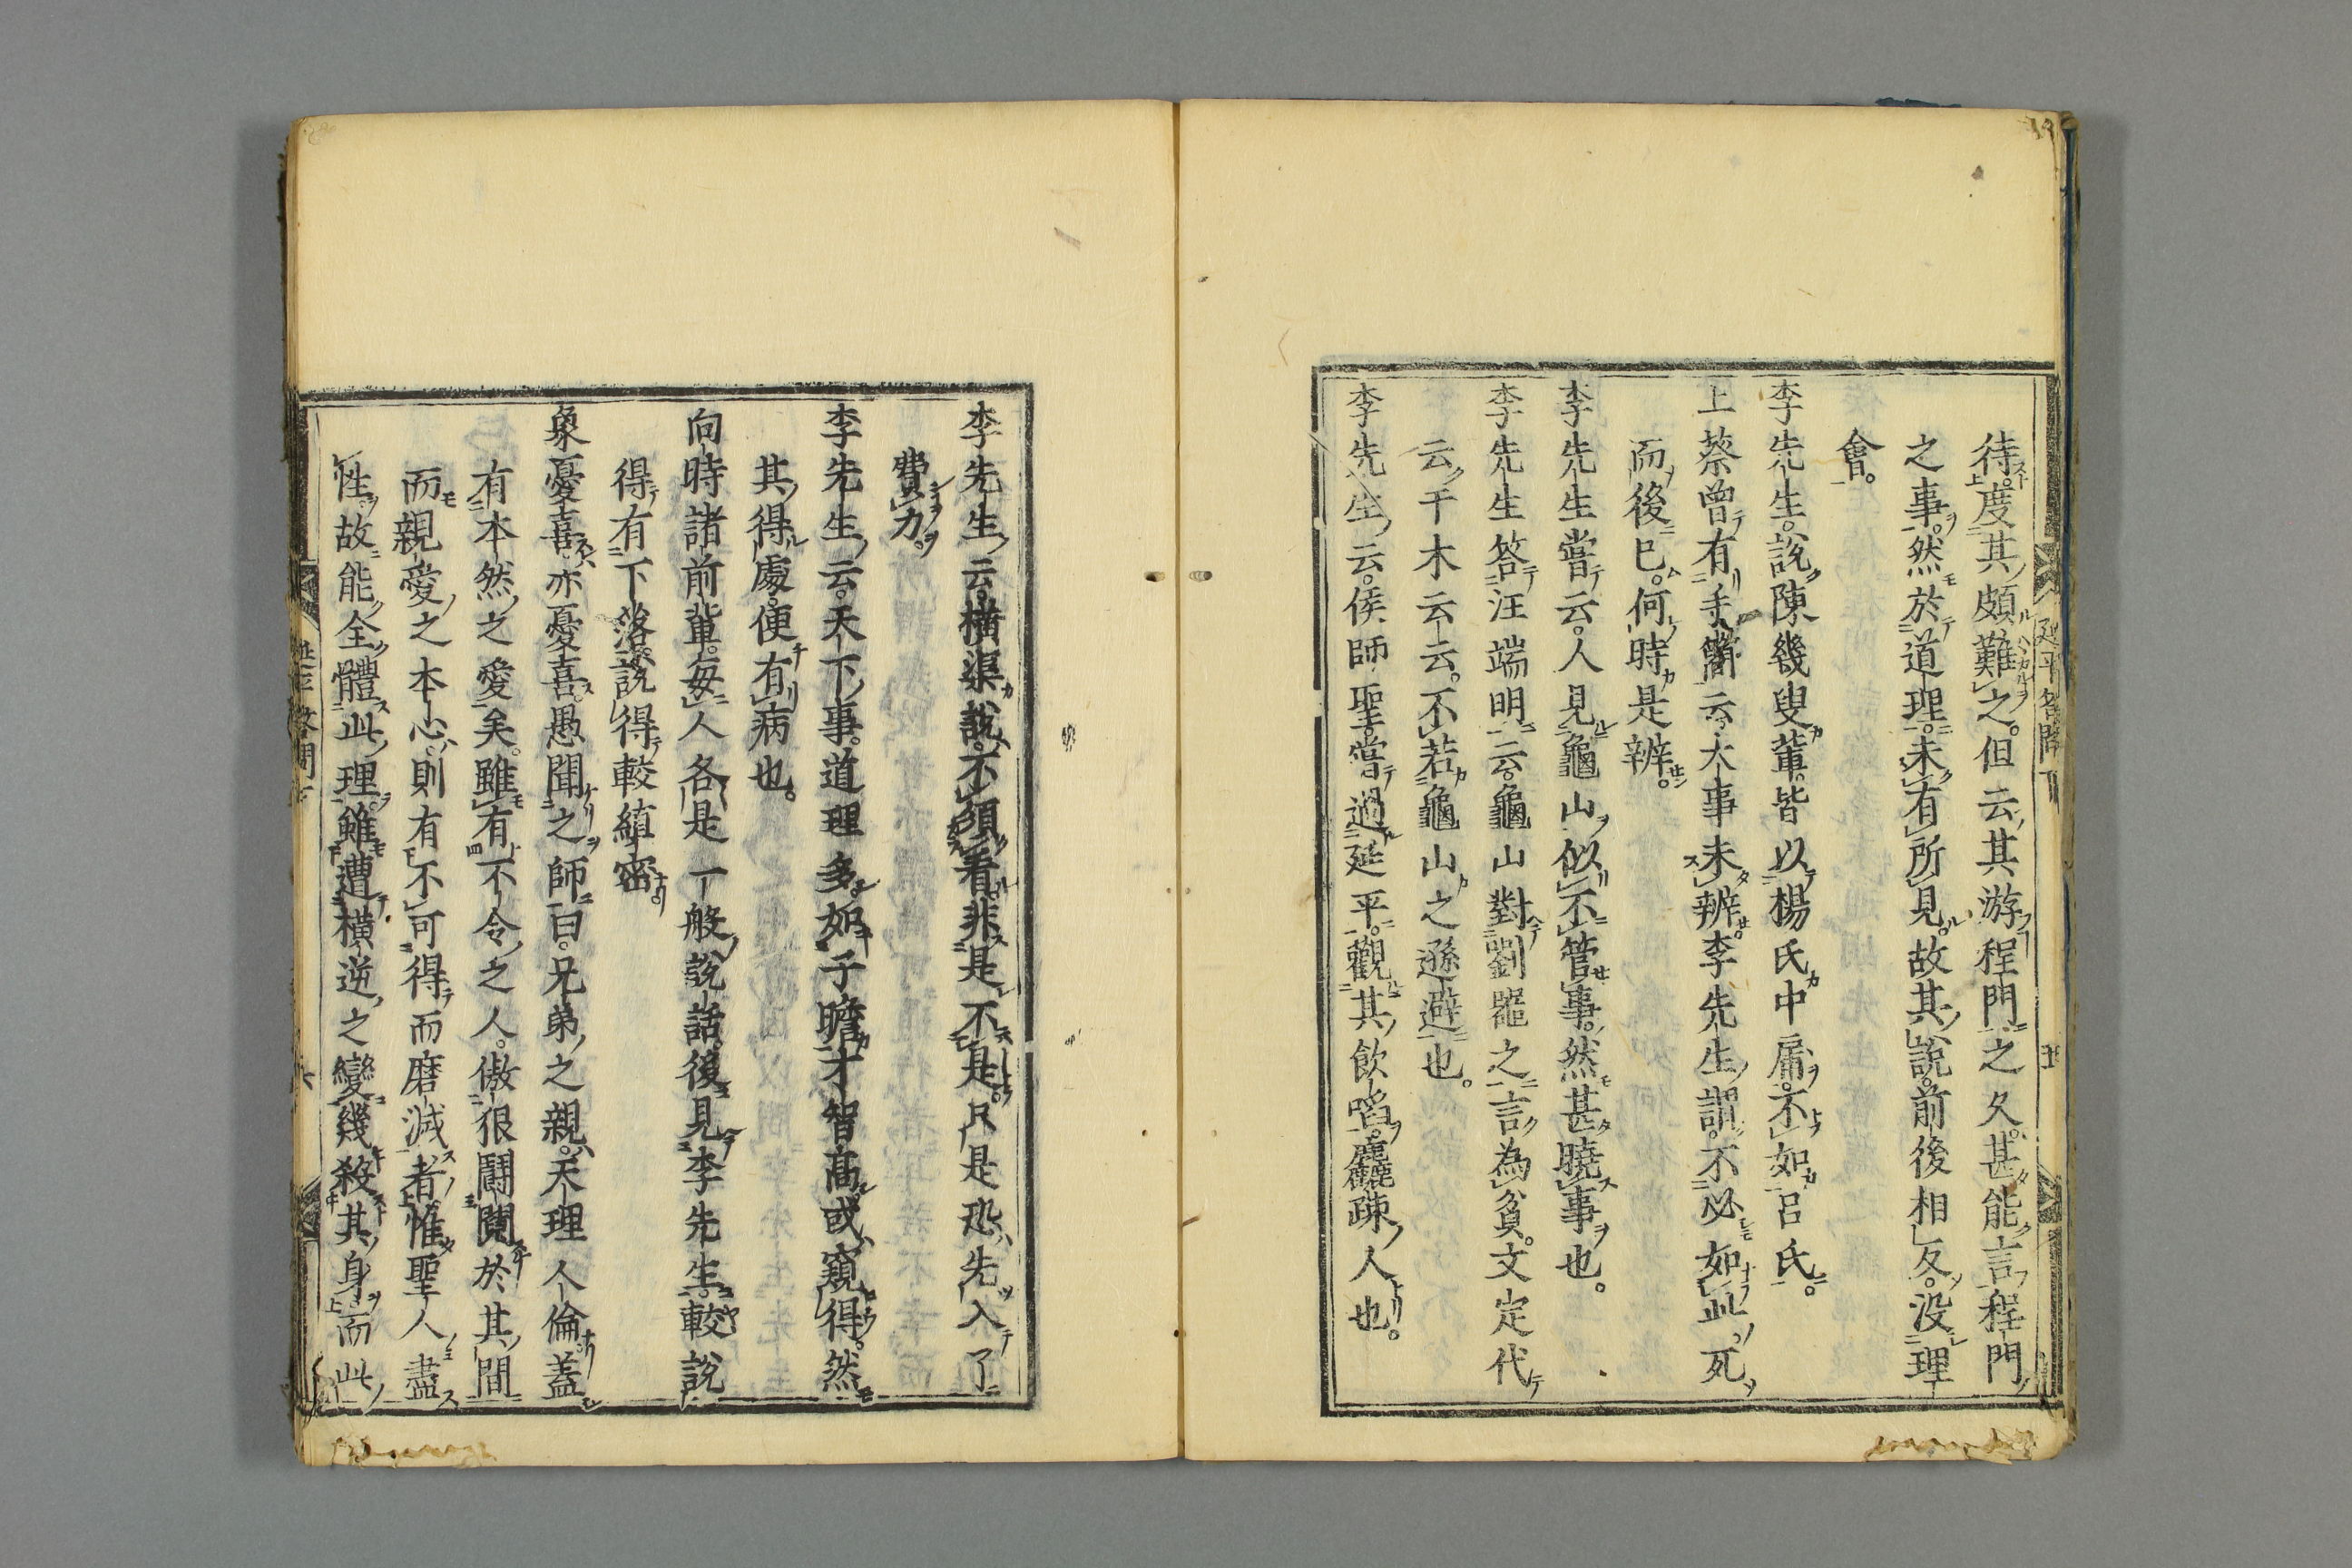 待度其頗難之。但云其游程門之久。甚能言程門
之事。然於道理。未有所見。故其說。前後相反。没理
會。
李先生。說陳幾叟輩。皆以楊氏中庸。不如呂氏。
上蔡曾有手簡云。大事未辨。李先生謂。不必如此。死
而後已。何時是辨。
李先生嘗云。人見龜山似不管事。然甚曉事也。
李先生答汪端明云。龜山對劉器之言。為貧。文定代
云。干木云云。不若龜山之遜避也。
李先生云。侯師聖。嘗過延平。觀其飲啗。麤疎人也。
李先生云。橫渠說。不須看。非是不是。只是恐先入了
費力。
李先生云。天下事。道理多。如子瞻才智高。或窺得。然
其得處。便有病也。
向時諸前輩。每人各是一般說話。後見李先生。較說
得有下落。說得較縝密。
象憂喜亦憂喜。愚聞之師曰。兄弟之親。天理人倫。蓋
有本然之愛矣。雖有不令之人。傲很鬪鬩於其間
而親愛之本心。則有不可得而磨滅者。惟聖人盡
性。故能全體此理。雖遭橫逆之變幾殺其身而此